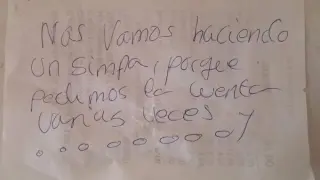 Nos vamos haciendo
un simpa, porqee
pedimos la wenta
varias veces y
. . o o o o o o o